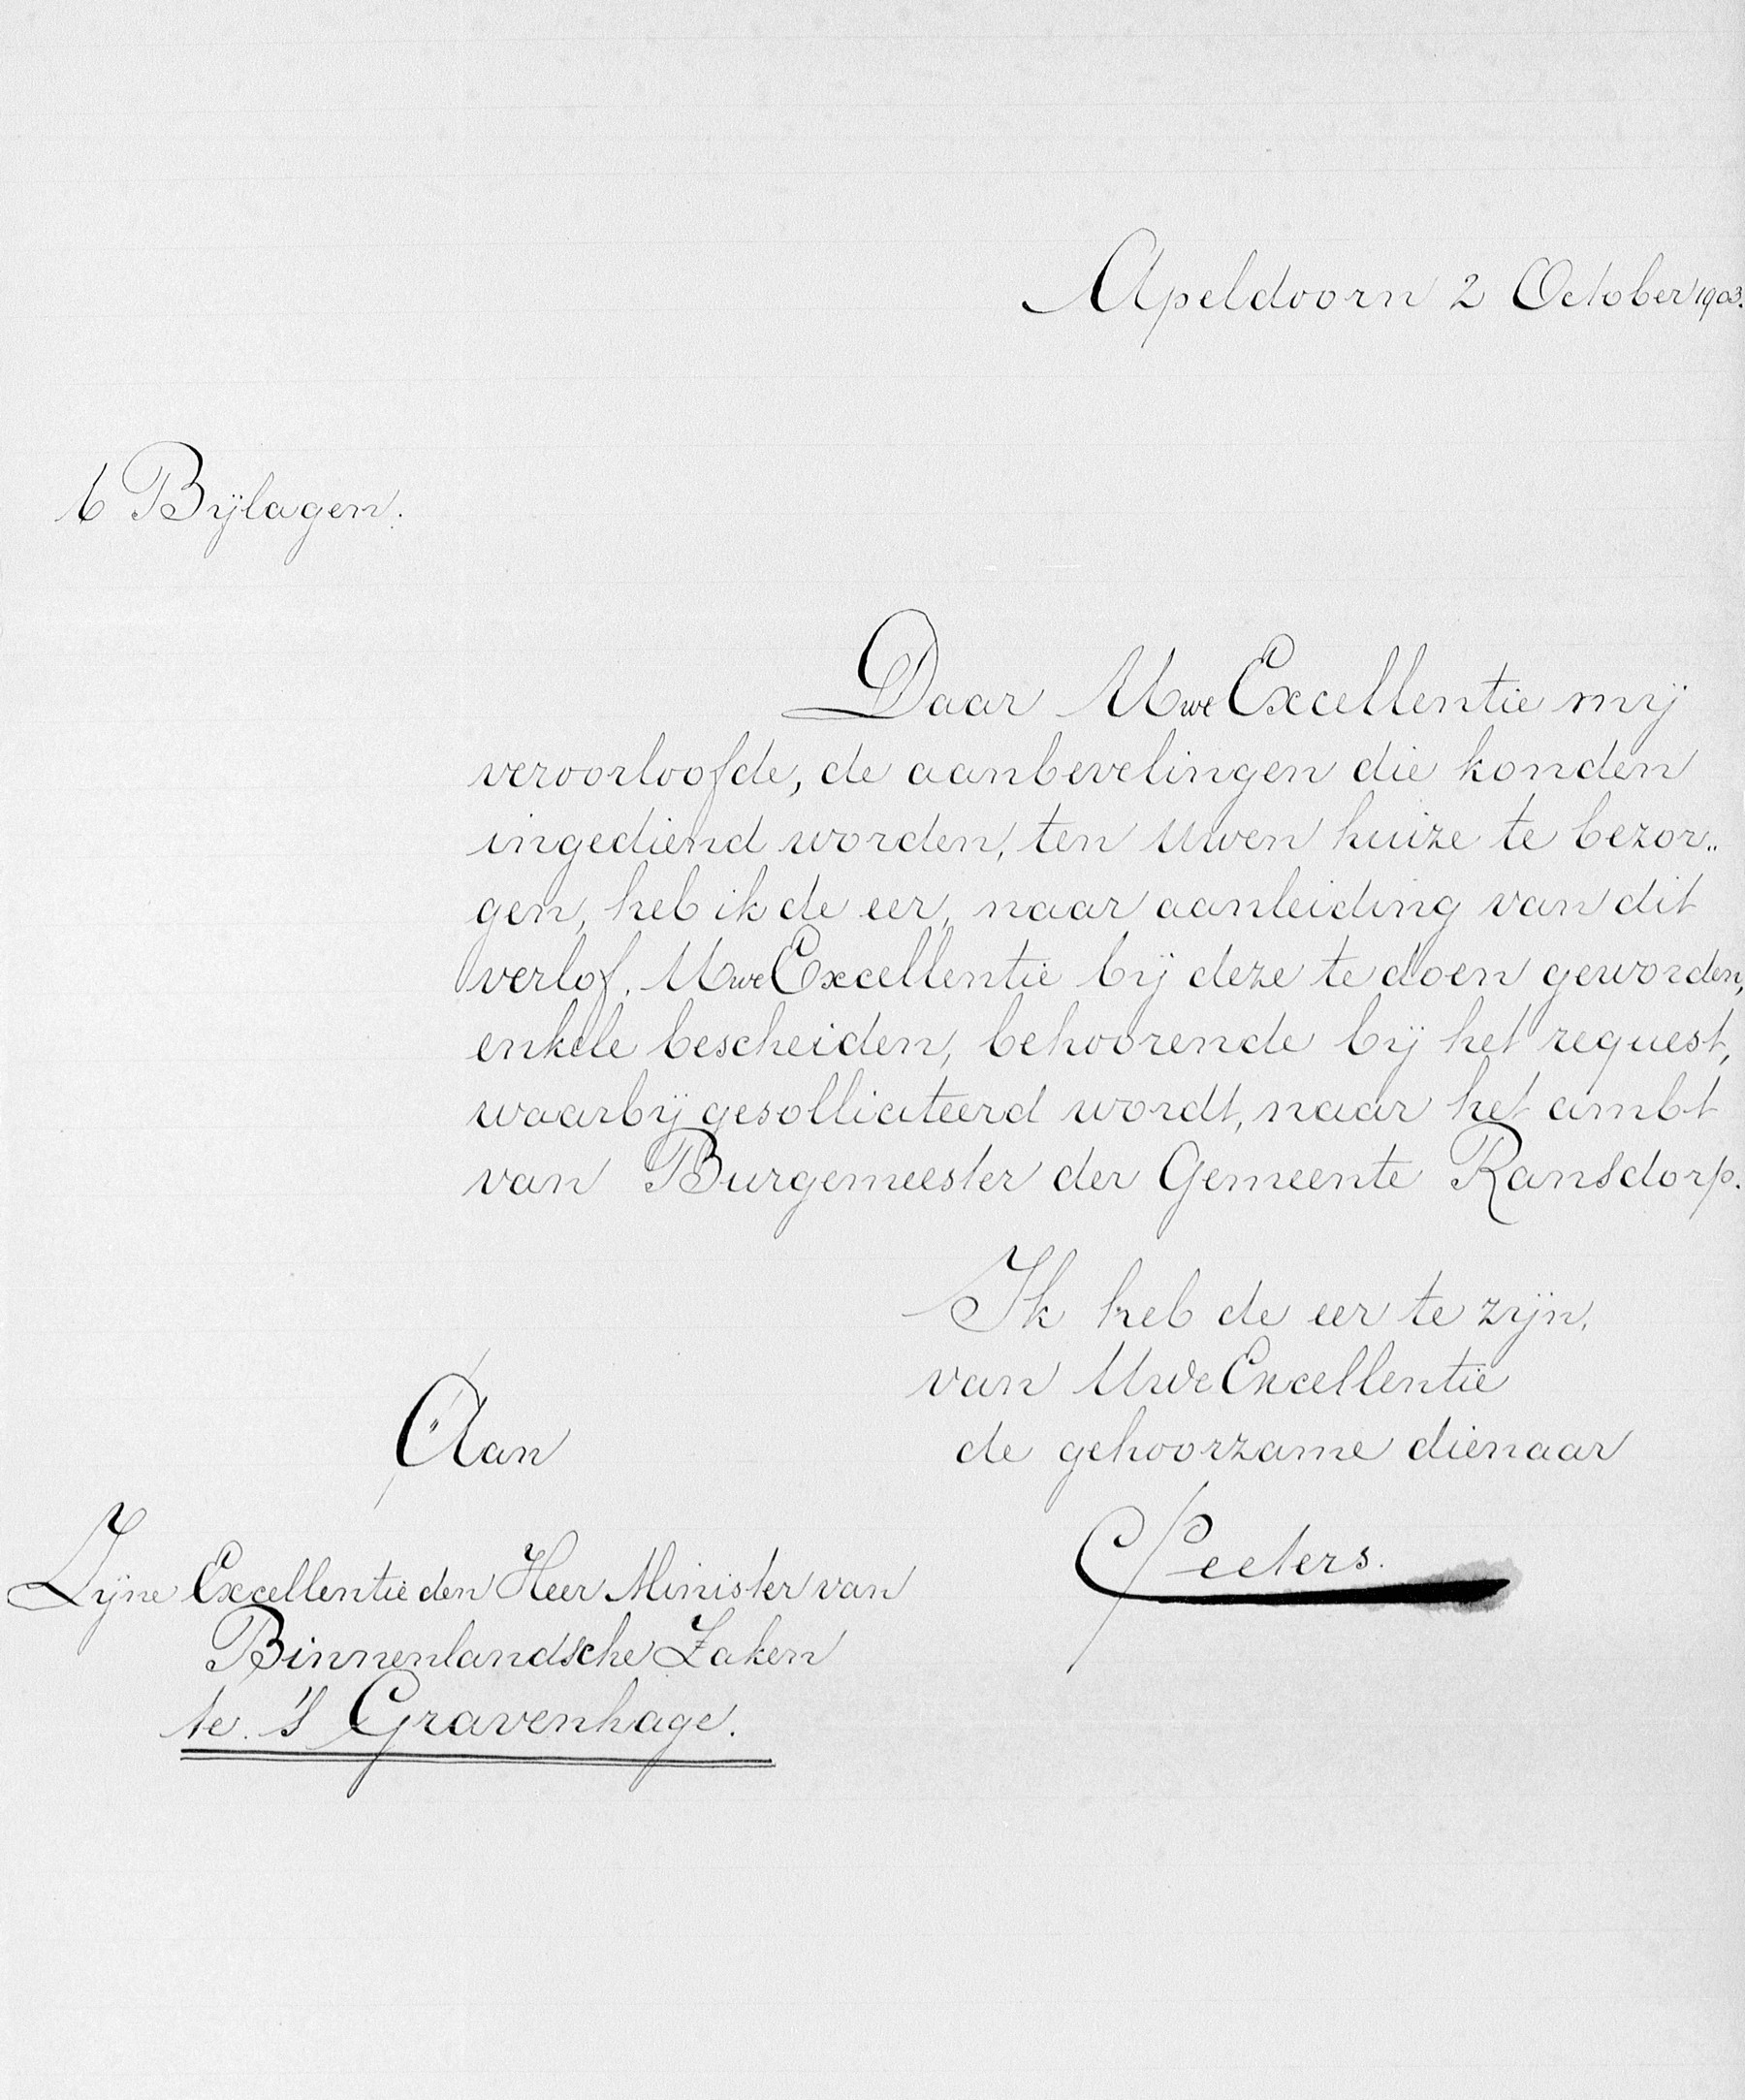 Apeldoorn 2 October 1903.
6 Bijlagen.
Daar Uwe Excellentie mij
veroorloofde, de aanbevelingen die konden
ingediend worden, ten Uwen huize te bezor„
gen, heb ik de eer, naar aanleiding van dit
verlof, Uwe Excellentie bij deze te doen geworden,
enkele bescheiden, behoorende bij het request,
waarbij gesolliciteerd wordt, naar het ambt
van Burgemeester der Gemeente Ransdorp.
Ik heb de eer te zijn,
van Uwe Excellentie
de gehoorzame dienaar
CPeeters.
Aan
Zijne Excellentie den Heer Minister van
Binnenlandsche Zaken
te 's Gravenhage.